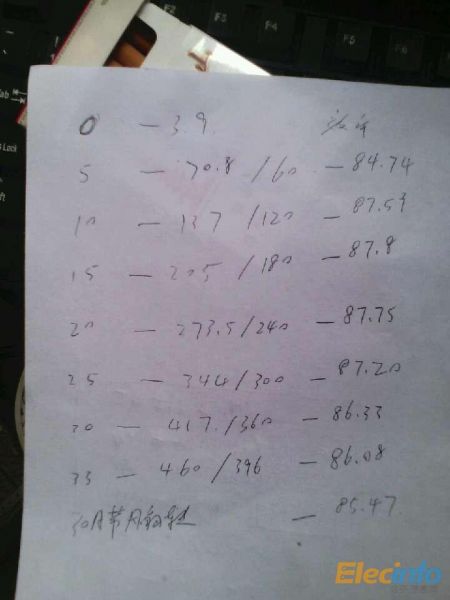 0 — 3.9 效率
5 — 70.8 / 60 — 84.74
10 — 137 / 120 — 87.59
15 — 205 / 180 — 87.8
20 — 273.5 / 240 — 87.75
25 — 344 / 300 — 87.20
30 — 417 / 360 — 86.33
33 — 460 / 396 — 86.08
30A 带 — 85.47
Elecinfo
F2
F3
F5
F6
Tab
s Lock
ft